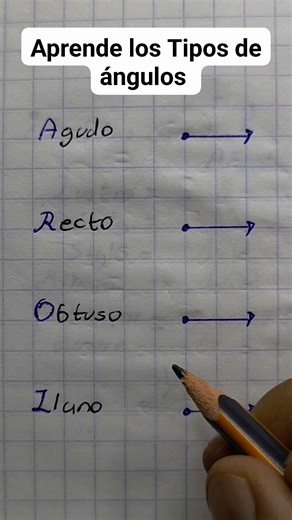 Aprende los Tipos de
ángulos
Agudo
Recto
Obtuso
Ilano